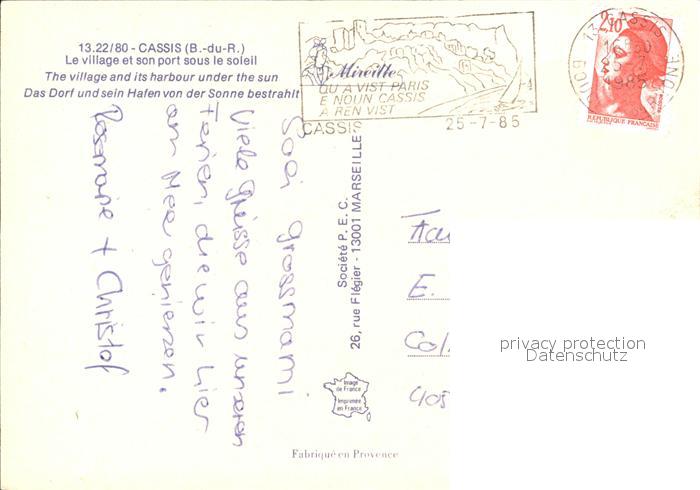 13.22/80 - CASSIS (B.-du-R.)
Le village et son port sous le soleil
The village and its harbour under the sun
Das Dorf und sein Hafen von der Sonne bestrahlt
Mireille
QU A VIST PARIS
E NOUN CASSIS
A REN VIST
CASSIS 25-7-85
13 CASSIS
25-7
1985
2,10
REPUBLIQUE FRANÇAISE
grossmami
Viele Grüsse aus unseren
Ferien, die wir hier
am Meer geniessen.
Rosmarie + Christof
Société P. E. C.
26, rue Flégier - 13001 MARSEILLE
E.
Col
405
privacy protection
Datenschutz
Image
de France
Imprimée
en France
Fabriqué en Provence